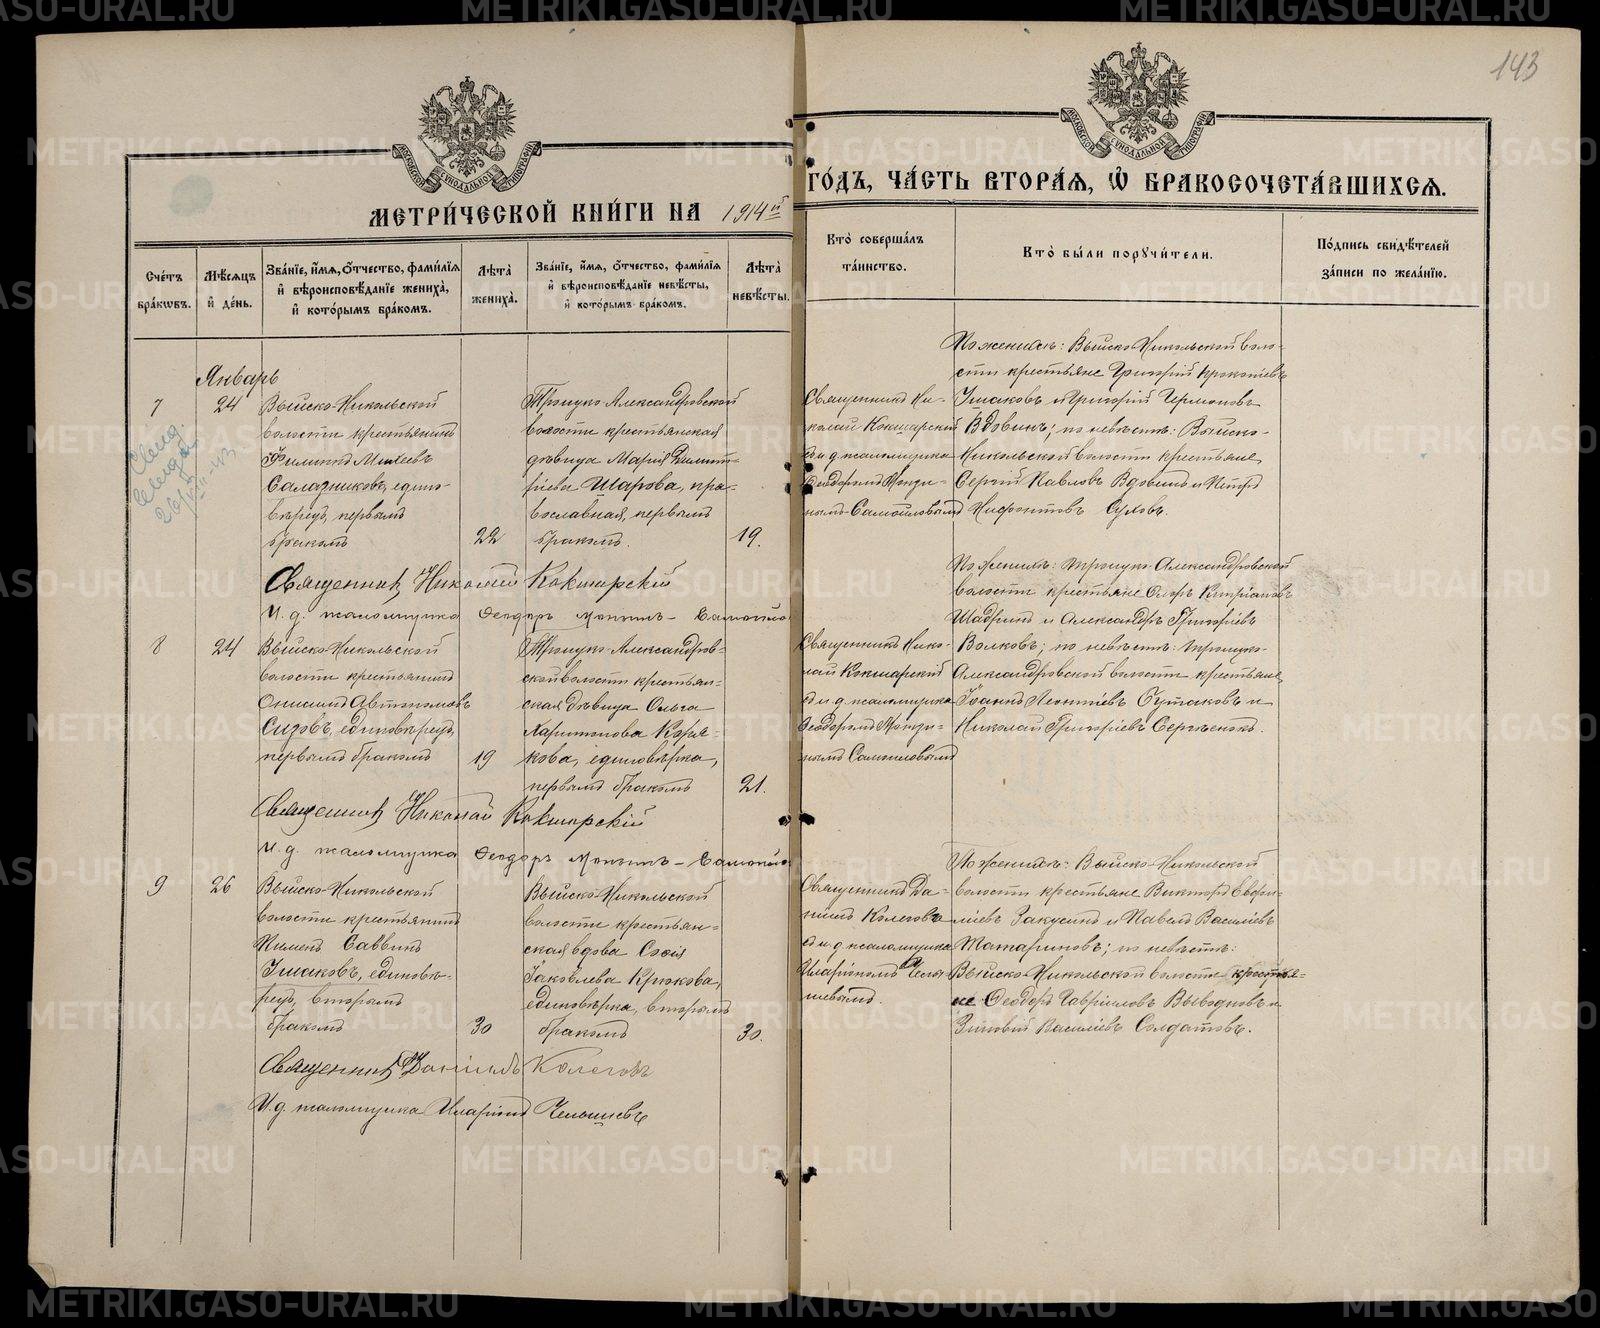 143
МЕТРИ́ЧЕСКОЙ КНИ́ГИ НА 1914й
ГО́ДЪ, ЧА́СТЬ ВТОРА́Я, Ѡ҆ БРАКОСОЧЕТА́ВШИХСЯ.
Сче́тъ бра́кѡвъ.
Мѣ́сяцъ и҆ де́нь.
Зва́нїе, и҆́мя, о҆́тчество, фами́лїя и҆ вѣроисповѣ́данїе жениха̀, и҆ кото́рымъ бра́комъ.
Лѣ́та жениха̀.
Зва́нїе, и҆́мя, о҆́тчество, фами́лїя и҆ вѣроисповѣ́данїе невѣ́сты, и҆ кото́рымъ бра́комъ.
Лѣ́та невѣ́сты.
Кто̀ соверша́лъ та́инство.
Кто̀ бы́ли порꙋчи́тели.
По́дпись свидѣ́телей за́писи по жела́нїю.
Январь
7
24
Выйско-Никольской
волости крестьянинъ
Филиппъ Михеевъ
Саладниковъ, едино-
вѣрецъ, первымъ
бракомъ
22
Троицко-Александровской
волости крестьянская
дѣвица Марія Димит-
ріева Шарова, пра-
вославная, первымъ
бракомъ.
19.
Священникъ Ни-
колай Кокшарскій
съ и. д. псаломщика
Ѳеодоромъ Мокри-
нымъ-Самойловымъ
По женихѣ: Выйско-Никольской воло-
сти крестьяне Григорій Прокопіевъ
Ушаковъ и Григорій Германовъ
Вдовинъ; по невѣстѣ: Выйско-
Никольской волости крестьяне
Сергій Павловъ Вдовинъ и Петръ
Нифонтовъ Суховъ.
Священникъ Николай Кокшарскій
И. д. псаломщика Ѳеодоръ
8
24
Выйско-Никольской
волости крестьянинъ
Онисимъ Автономовъ
Сизовъ, единовѣрецъ,
первымъ бракомъ
19
Троицко-Александров-
ской волости крестьян-
ская дѣвица Ольга
Харитонова Коря-
кова, единовѣрка,
первымъ бракомъ
21.
Священникъ Нико-
лай Кокшарскій
съ и. д. псаломщика
Ѳеодоромъ Мокри-
нымъ Самойловымъ
По женихѣ: Троицко-Александровской
волости крестьяне Егоръ Кипріановъ
Шадринъ и Александръ Григоріевъ
Волковъ; по невѣстѣ: Троицко-
Александровской волости крестьяне
Іоаннъ Леонтіевъ Бутаковъ и
Николай Григоріевъ Сергѣенко.
Священникъ Николай Кокшарскій
И. д. псаломщика Ѳеодоръ
9
26
Выйско-Никольской
волости крестьянинъ
Пименъ Саввинъ
Ушаковъ, единовѣ-
рецъ, вторымъ
бракомъ
30
Выйско-Никольской
волости крестьян-
ская вдова Софія
Іаковлева Крюкова,
единовѣрка, вторымъ
бракомъ
30.
Священникъ Да-
ніилъ Колеговъ
съ и. д. псаломщика
Иларіономъ Челы-
шевымъ.
По женихѣ: Выйско-Никольской
волости крестьяне Викторъ Евфи-
міевъ Закусинъ и Павелъ Василіевъ
Татариновъ; по невѣстѣ:
Выйско-Никольской волости крестья-
не Ѳеодоръ Гавріиловъ Выводновъ и
Зиновій Василіевъ Солдатовъ.
Священникъ Даніилъ Колеговъ
И. д. псаломщика Иларіонъ Челышевъ
METRIKI.GASO-URAL.RU